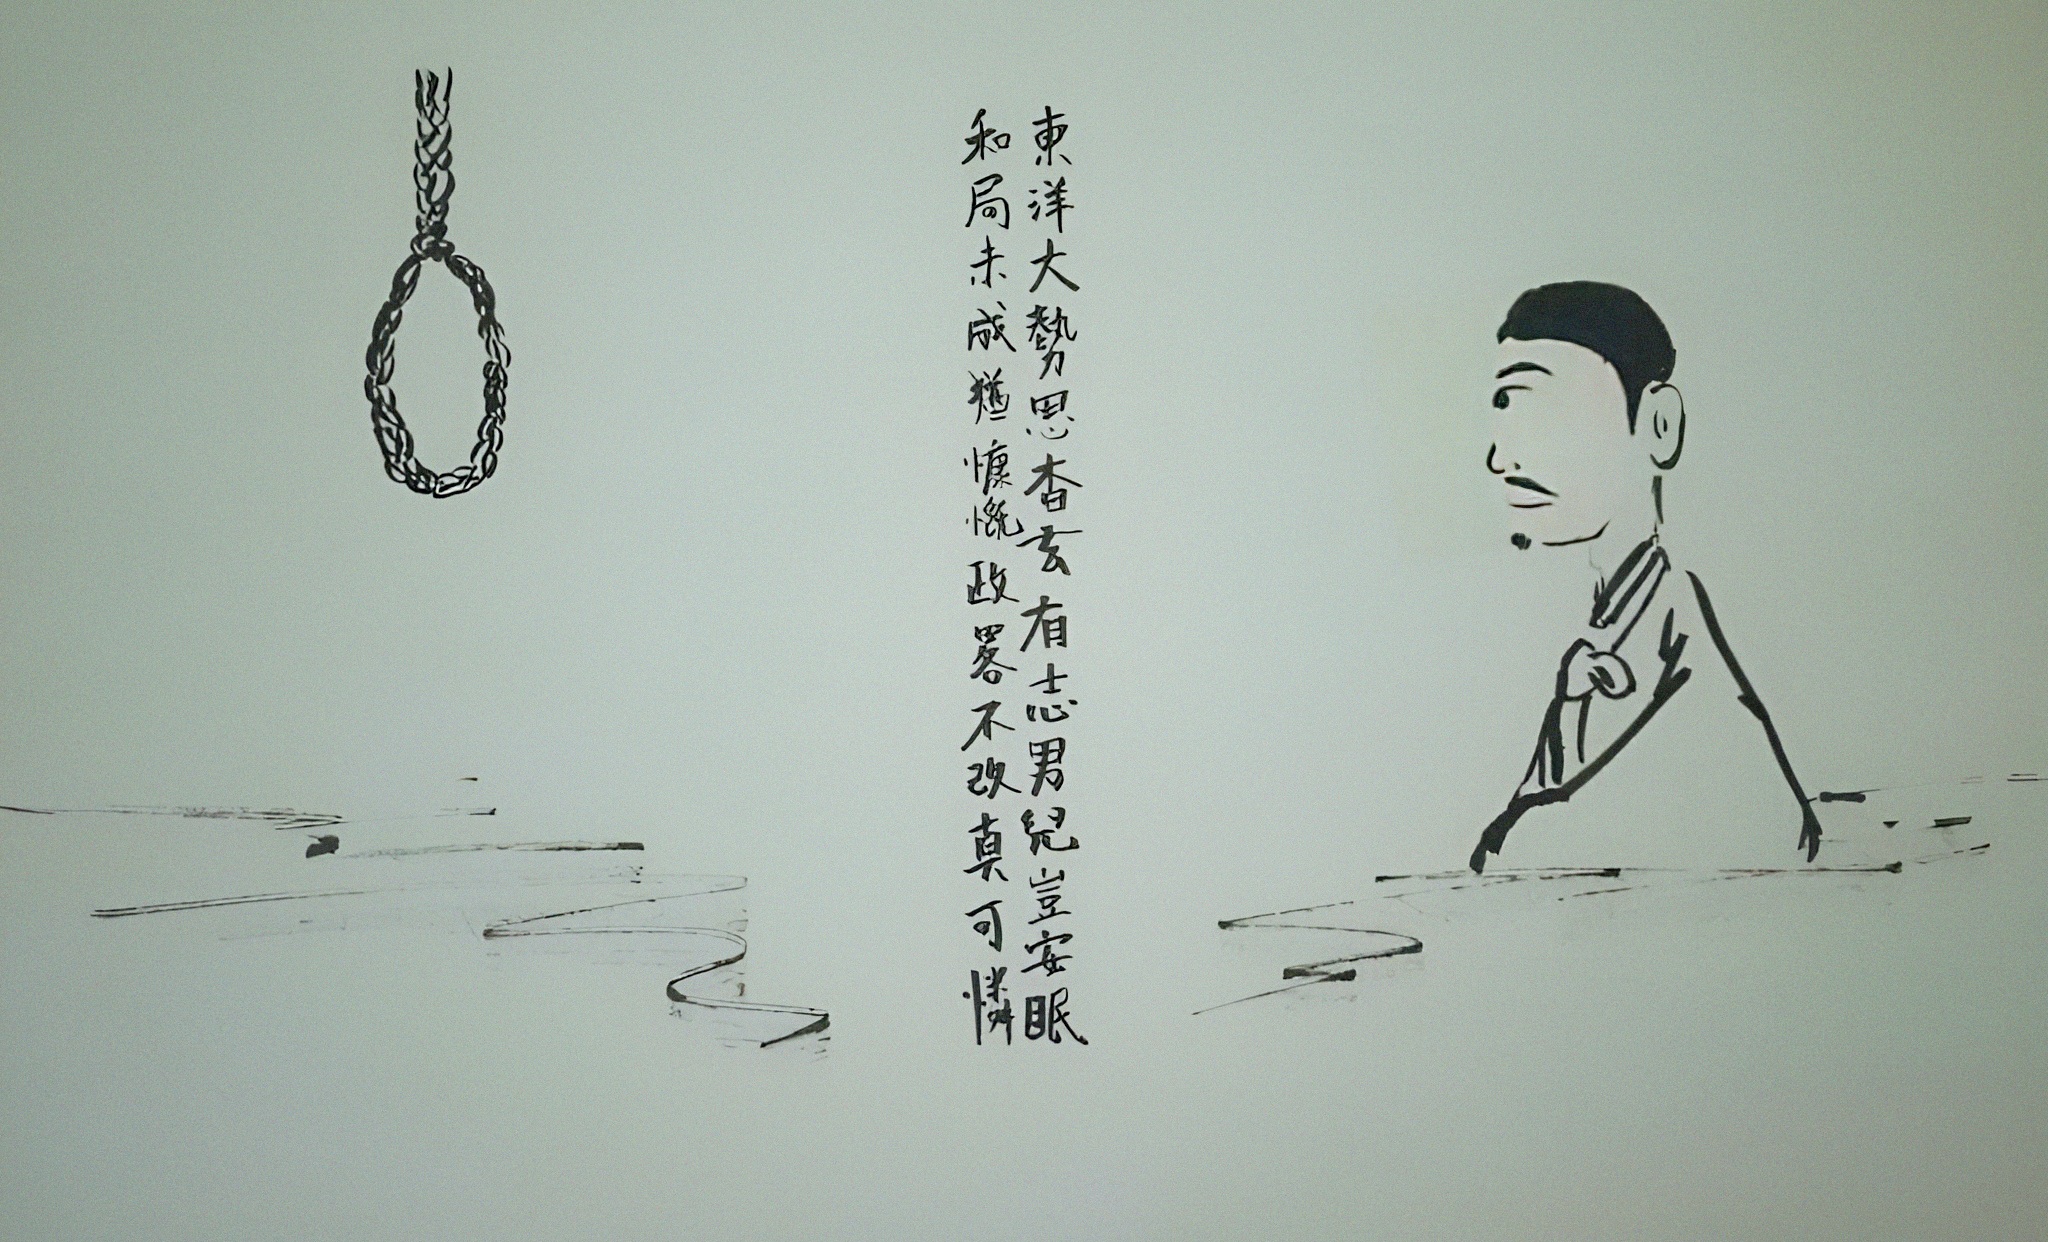 東洋大勢思杳玄有志男兒豈安眠
和局未成猶慷慨政畧不改真可憐